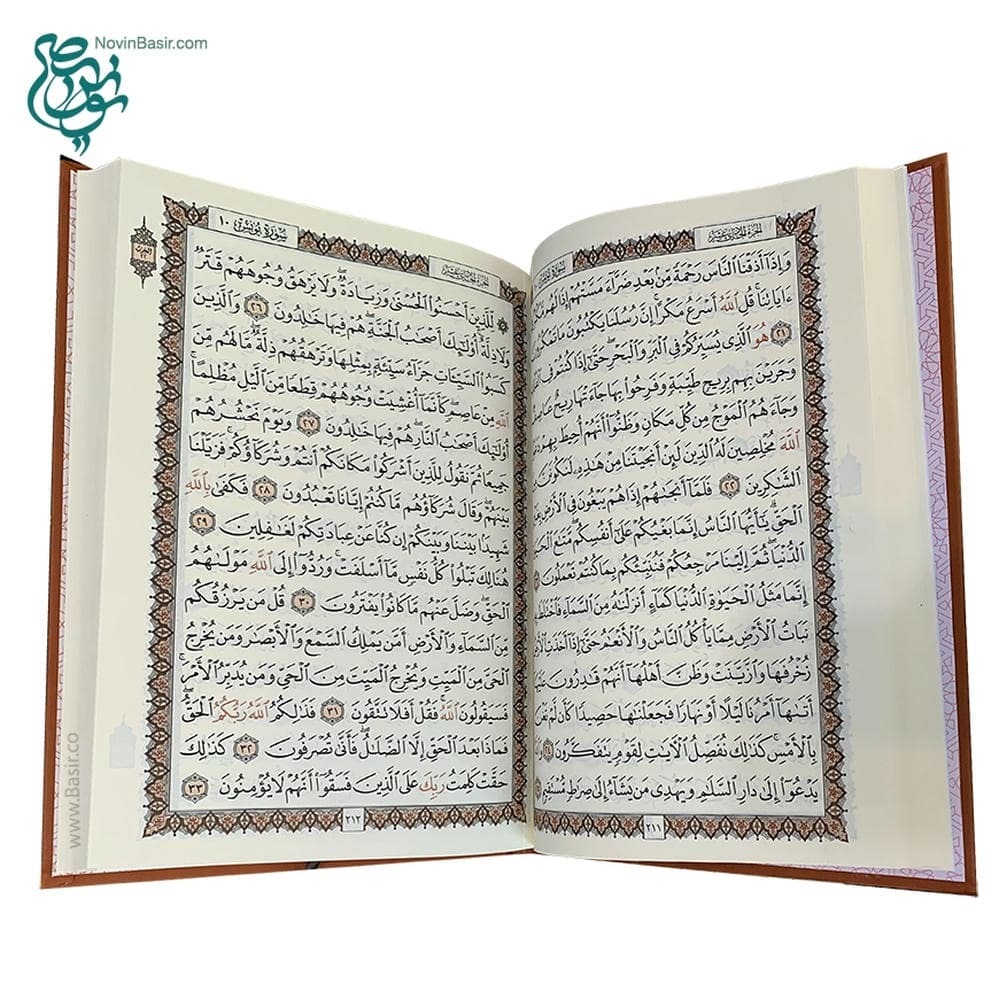 NovinBasir.com
الجُزْءُ الحَادِي عَشَرَ
سُورَةُ
وَإِذَآ أَذَقۡنَا ٱلنَّاسَ رَحۡمَةٗ مِّنۢ بَعۡدِ ضَرَّآءَ مَسَّتۡهُمۡ إِذَا لَهُم
ءَايَاتِنَاۚ قُلِ ٱللَّهُ أَسۡرَعُ مَكۡرًاۚ إِنَّ رُسُلَنَا يَكۡتُبُونَ مَا تَمۡكُرُونَ
٢١ هُوَ ٱلَّذِي يُسَيِّرُكُمۡ فِي ٱلۡبَرِّ وَٱلۡبَحۡرِۖ حَتَّىٰٓ إِذَا كُنتُمۡ فِي
وَجَرَيۡنَ بِهِم بِرِيحٖ طَيِّبَةٖ وَفَرِحُواْ بِهَا جَآءَتۡهَا رِيحٌ عَاصِفٞ
وَجَآءَهُمُ ٱلۡمَوۡجُ مِن كُلِّ مَكَانٖ وَظَنُّوٓاْ أَنَّهُمۡ أُحِيطَ بِهِمۡ
ٱللَّهَ مُخۡلِصِينَ لَهُ ٱلدِّينَ لَئِنۡ أَنجَيۡتَنَا مِنۡ هَٰذِهِۦ لَنَكُونَنَّ
ٱلشَّٰكِرِينَ ٢٢ فَلَمَّآ أَنجَىٰهُمۡ إِذَا هُمۡ يَبۡغُونَ فِي ٱلۡأَرۡضِ
ٱلۡحَقِّۗ يَٰٓأَيُّهَا ٱلنَّاسُ إِنَّمَا بَغۡيُكُمۡ عَلَىٰٓ أَنفُسِكُمۖ مَّتَٰعَ ٱلۡحَيَوٰةِ
ٱلدُّنۡيَاۖ ثُمَّ إِلَيۡنَا مَرۡجِعُكُمۡ فَنُنَبِّئُكُم بِمَا كُنتُمۡ تَعۡمَلُونَ
إِنَّمَا مَثَلُ ٱلۡحَيَوٰةِ ٱلدُّنۡيَا كَمَآءٍ أَنزَلۡنَٰهُ مِنَ ٱلسَّمَآءِ فَٱخۡتَلَطَ
نَبَاتُ ٱلۡأَرۡضِ مِمَّا يَأۡكُلُ ٱلنَّاسُ وَٱلۡأَنۡعَٰمُ حَتَّىٰٓ إِذَآ أَخَذَتِ ٱلۡأَرۡضُ
زُخۡرُفَهَا وَٱزَّيَّنَتۡ وَظَنَّ أَهۡلُهَآ أَنَّهُمۡ قَٰدِرُونَ عَلَيۡهَآ
أَتَىٰهَآ أَمۡرُنَا لَيۡلًا أَوۡ نَهَارٗا فَجَعَلۡنَٰهَا حَصِيدٗا كَأَن لَّمۡ تَغۡنَ
بِٱلۡأَمۡسِۚ كَذَٰلِكَ نُفَصِّلُ ٱلۡأٓيَٰتِ لِقَوۡمٖ يَتَفَكَّرُونَ ٢٤
يَدۡعُوٓاْ إِلَىٰ دَارِ ٱلسَّلَٰمِ وَيَهۡدِي مَن يَشَآءُ إِلَىٰ صِرَٰطٖ مُّسۡتَقِيمٖ
٢١١
سُورَةُ يُونُسَ ١٠
الجُزْءُ الحَادِي عَشَرَ
۞ لِّلَّذِينَ أَحۡسَنُواْ ٱلۡحُسۡنَىٰ وَزِيَادَةٞۖ وَلَا يَرۡهَقُ وُجُوهَهُمۡ قَتَرٞ
وَلَا ذِلَّةٌۚ أُوْلَٰٓئِكَ أَصۡحَٰبُ ٱلۡجَنَّةِۖ هُمۡ فِيهَا خَٰلِدُونَ ٢٦ وَٱلَّذِينَ
كَسَبُواْ ٱلسَّيِّـَٔاتِ جَزَآءُ سَيِّئَةِۭ بِمِثۡلِهَا وَتَرۡهَقُهُمۡ ذِلَّةٞۖ مَّا لَهُم مِّنَ
ٱللَّهِ مِنۡ عَاصِمٖۖ كَأَنَّمَآ أُغۡشِيَتۡ وُجُوهُهُمۡ قِطَعٗا مِّنَ ٱلَّيۡلِ مُظۡلِمًاۚ
أُوْلَٰٓئِكَ أَصۡحَٰبُ ٱلنَّارِۖ هُمۡ فِيهَا خَٰلِدُونَ ٢٧ وَيَوۡمَ نَحۡشُرُهُمۡ
جَمِيعٗا ثُمَّ نَقُولُ لِلَّذِينَ أَشۡرَكُواْ مَكَانَكُمۡ أَنتُمۡ وَشُرَكَآؤُكُمۡۚ فَزَيَّلۡنَا
بَيۡنَهُمۡۖ وَقَالَ شُرَكَآؤُهُم مَّا كُنتُمۡ إِيَّانَا تَعۡبُدُونَ ٢٨ فَكَفَىٰ بِٱللَّهِ
شَهِيدَۢا بَيۡنَنَا وَبَيۡنَكُمۡ إِن كُنَّا عَنۡ عِبَادَتِكُمۡ لَغَٰفِلِينَ ٢٩
هُنَالِكَ تَبۡلُواْ كُلُّ نَفۡسٖ مَّآ أَسۡلَفَتۡۚ وَرُدُّوٓاْ إِلَى ٱللَّهِ مَوۡلَىٰهُمُ
ٱلۡحَقِّۖ وَضَلَّ عَنۡهُم مَّا كَانُواْ يَفۡتَرُونَ ٣٠ قُلۡ مَن يَرۡزُقُكُم
مِّنَ ٱلسَّمَآءِ وَٱلۡأَرۡضِ أَمَّن يَمۡلِكُ ٱلسَّمۡعَ وَٱلۡأَبۡصَٰرَ وَمَن يُخۡرِجُ
ٱلۡحَيَّ مِنَ ٱلۡمَيِّتِ وَيُخۡرِجُ ٱلۡمَيِّتَ مِنَ ٱلۡحَيِّ وَمَن يُدَبِّرُ ٱلۡأَمۡرَۚ
فَسَيَقُولُونَ ٱللَّهُۚ فَقُلۡ أَفَلَا تَتَّقُونَ ٣١ فَذَٰلِكُمُ ٱللَّهُ رَبُّكُمُ ٱلۡحَقُّۖ
فَمَاذَا بَعۡدَ ٱلۡحَقِّ إِلَّا ٱلضَّلَٰلُۖ فَأَنَّىٰ تُصۡرَفُونَ ٣٢ كَذَٰلِكَ
حَقَّتۡ كَلِمَتُ رَبِّكَ عَلَى ٱلَّذِينَ فَسَقُوٓاْ أَنَّهُمۡ لَا يُؤۡمِنُونَ ٣٣
٢١٢
www.Basir.co